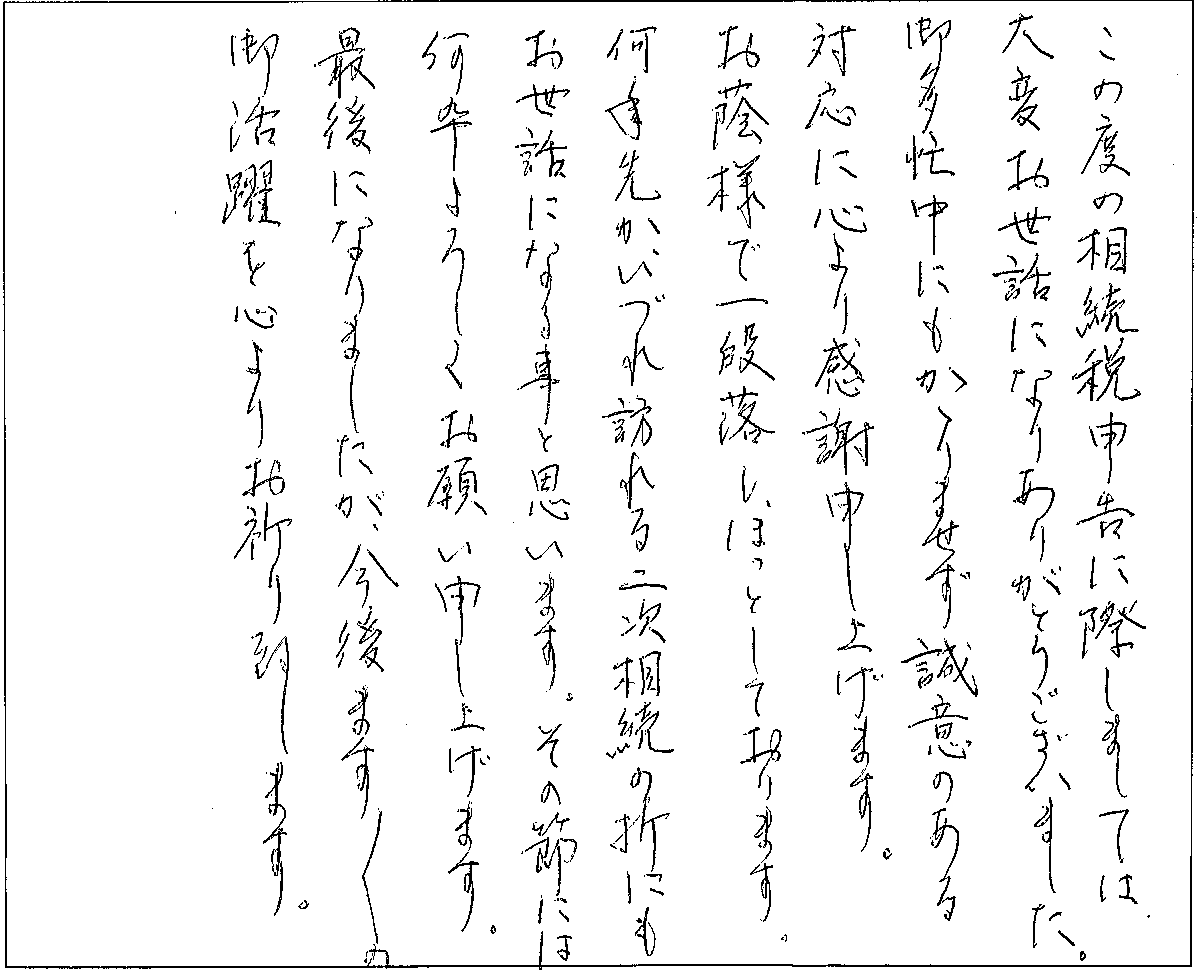 この度の相続税申告に際しましては、
大変お世話になりありがとうございました。
御多忙中にもかゝわりませず誠意のある
対応に心より感謝申し上げます。
お蔭様で一段落し、ほっとしております。
何年先かいづれ訪れる二次相続の折にも
お世話になる事と思います。その節には
何卒よろしくお願い申し上げます。
最後になりましたが、今後ます〱の
御活躍を心よりお祈り致します。